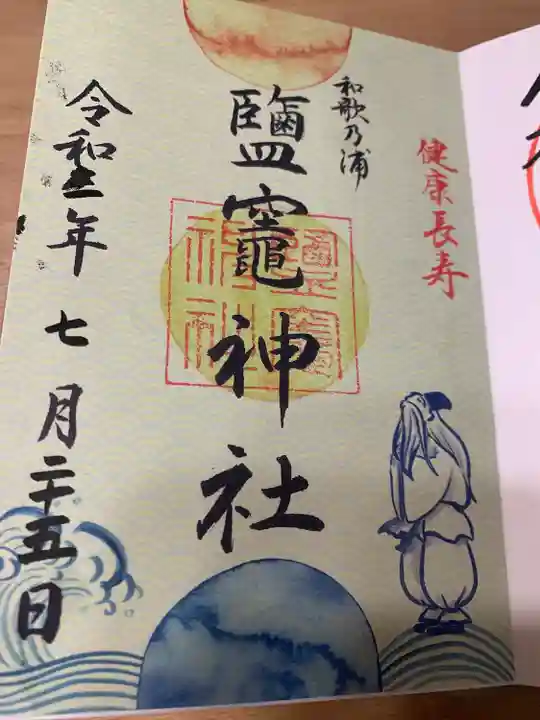 健康長寿
和歌乃浦
鹽竈神社
鹽竈神社
令和二年七月二十五日